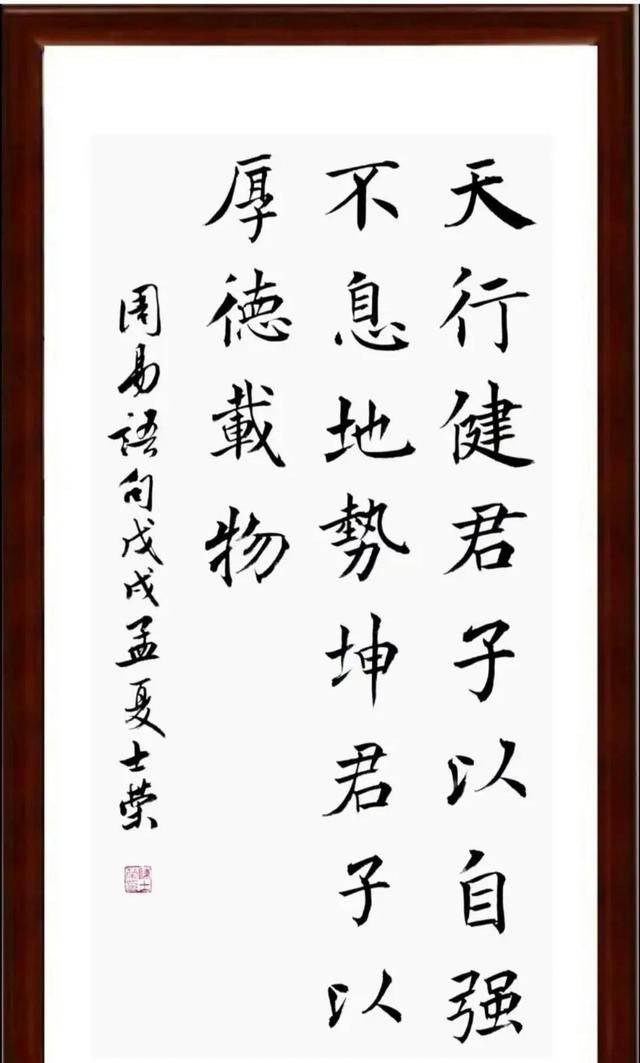 天行健君子以自强
不息地勢坤君子以
厚德載物
周易語句戊戌孟夏士荣